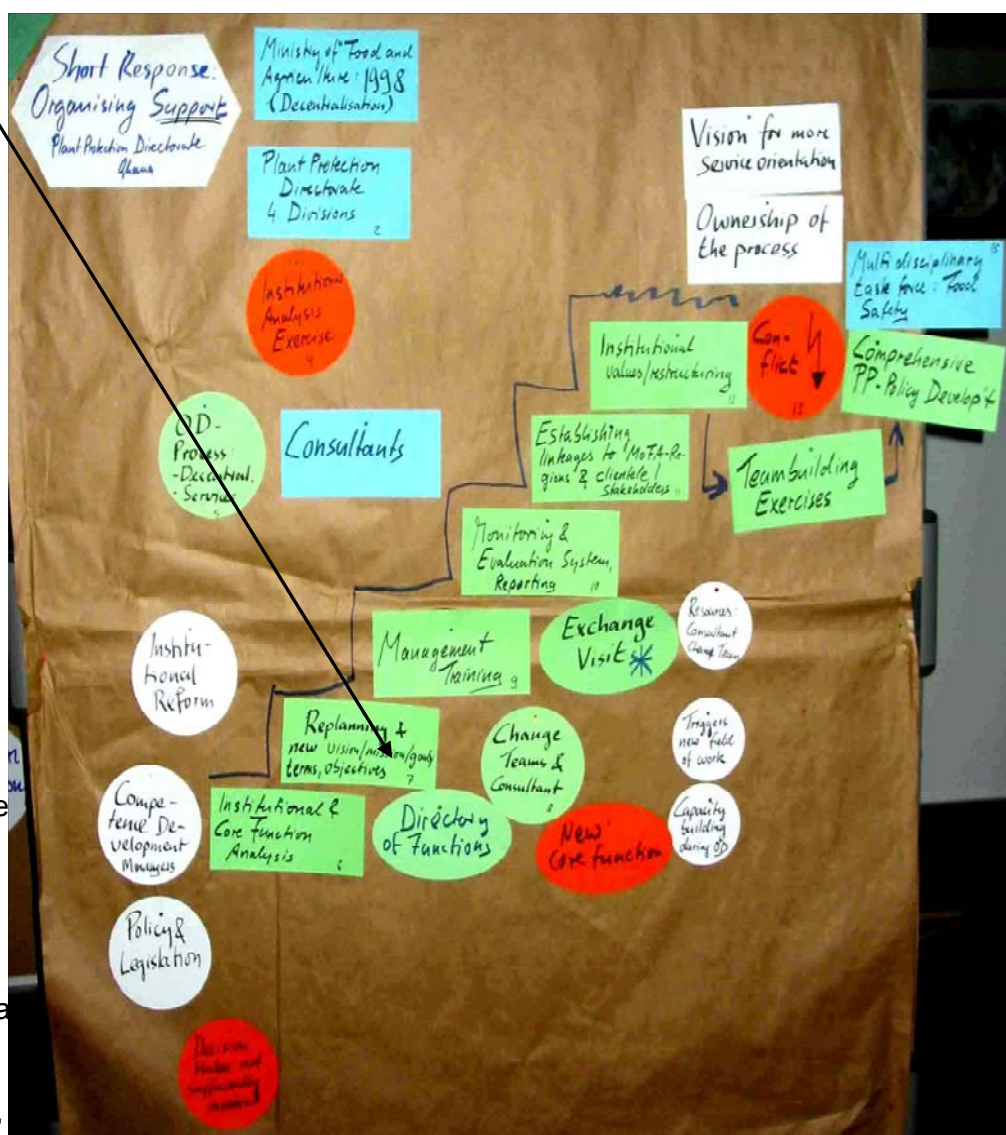 Short Response:
Organising Support
Plant Protection Directorate
Ghana
Ministry of Food and
Agriculture: 1998
(Decentralisation)
Plant Protection
Directorate
4 Divisions
2
Institutional
Analysis
Exercise
4
OD-
Process:
-Decentral.
-Services
5
Consultants
Vision for more
Service orientation
Ownership of
the process
Multidisciplinary
task force: Food
Safety
Institutional
values/restructuring
Con-
flict
13
Comprehensive
PP-Policy Developm't
Establishing
linkages to MoFA-Re-
gions & clientele/
stakeholders
Teambuilding
Exercises
Monitoring &
Evaluation System,
Reporting
10
Management
Training
9
Exchange
Visits
Resources:
Consultant
Change Team
Institu-
tional
Reform
Replanning &
new vision/mission/goals
terms, objectives
7
Change
Teams &
Consultant
8
Triggers
new field
of work
Compe-
tence De-
velopment
Managers
Institutional &
Core Function
Analysis
6
Directory
of Functions
New
Core function
Capacity
building
during OD
Policy &
Legislation
Decision
Maker not
sufficiently
involved